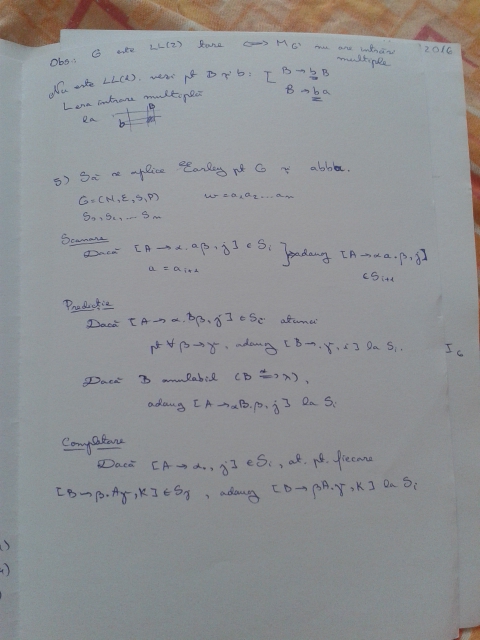 Obs.: G este LL(2) tare ⟺ M_G nu are intrări multiple
2016
Nu este LL(1). vezi pt B și b: [ B → bB
B → ba
L era intrare multiplă
la
B
b
5) Să se aplice Earley pt G și abba.
G = (N, Σ, S, P) w = a₁a₂...aₙ
S₀, S₁, ... Sₙ
Scanare
Dacă [A → α.aβ, j] ∈ Sᵢ } adaug [A → αa.β, j]
a = aᵢ₊₁ ∈ Sᵢ₊₁
Predicție
Dacă [A → α.Bβ, j] ∈ Sᵢ atunci
pt ∀ B → γ, adaug [B → .γ, i] la Sᵢ.
I₆
Dacă B anulabil (B ⇒* λ),
adaug [A → αB.β, j] la Sᵢ
Completare
Dacă [A → α., j] ∈ Sᵢ, at. pt. fiecare
[B → β.Aγ, K] ∈ Sj, adaug [B → βA.γ, K] la Sᵢ